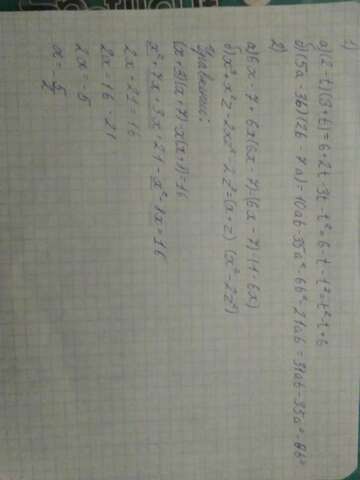 1)
а) (2-t)(3+t)=6+2t-3t-t²=6-t-t²=t²-t+6
б) (5a-3b)(2b-7a)=10ab-35a²-6b²-21ab=31ab-35a²-6b²
2)
а) 6x-7+6x(6x-7)=(6x-7)(1+6x)
б) x³+x²z-2xz²-2z³=(x+z)(x²-2z²)
Уравнение:
(x+3)(x+7)-x(x+8)=16
x²+7x+3x+21-x²-8x=16
2x+21=16
2x=16-21
2x=-5
x=-5/2